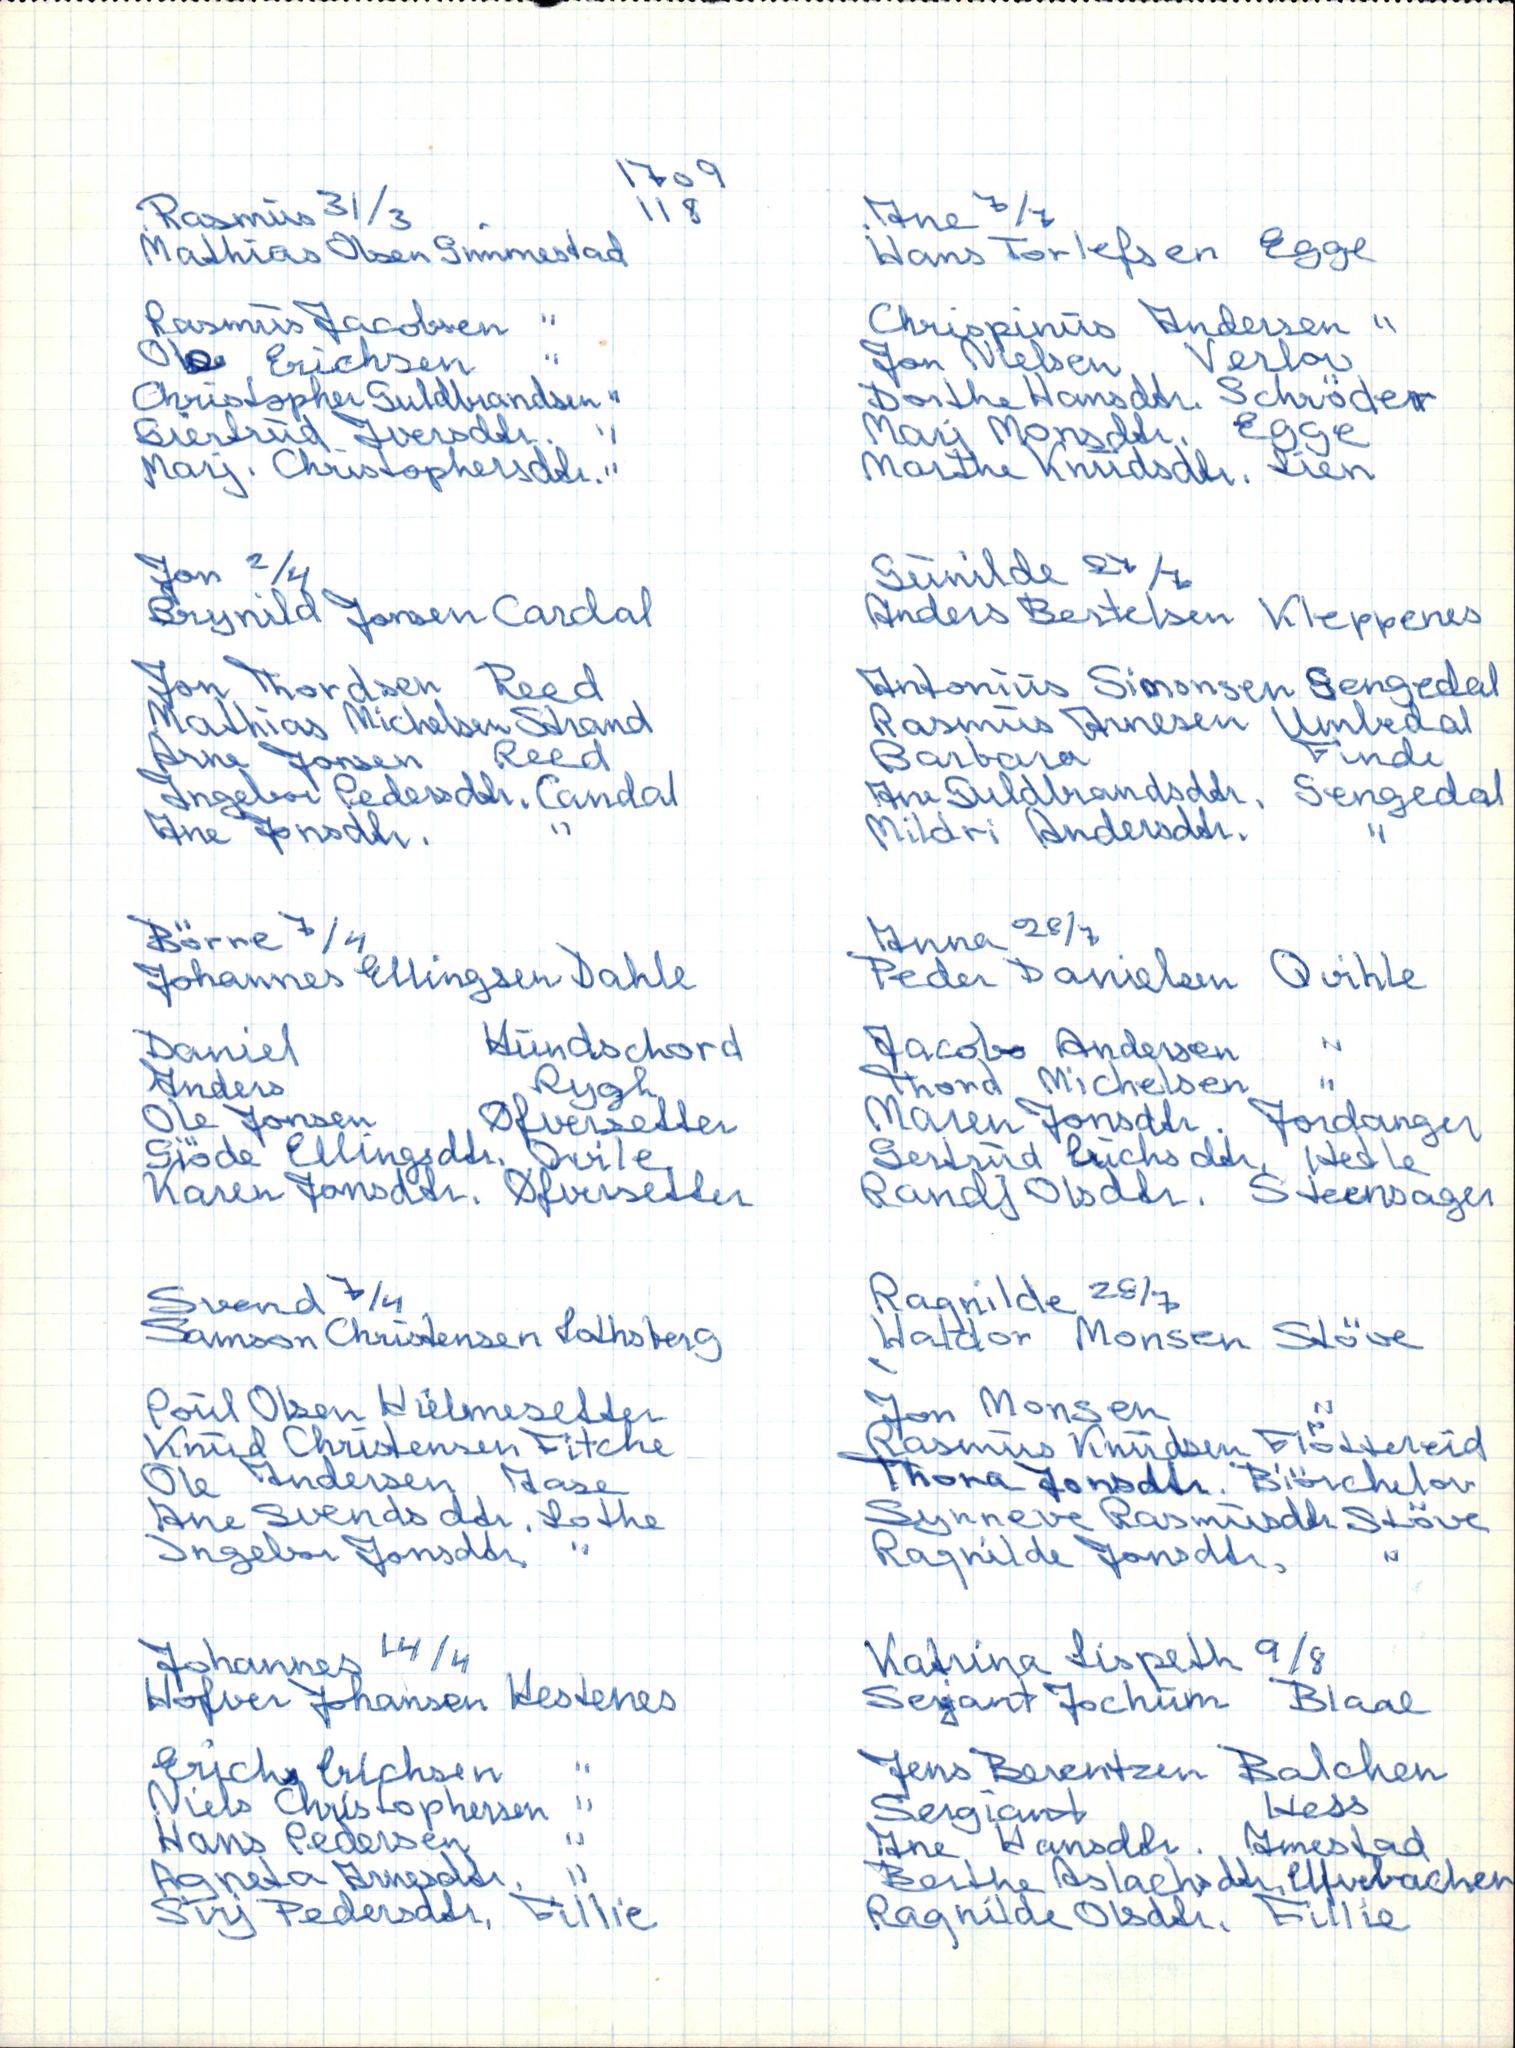 1709
118
Rasmüs 31/3
Mathias Olsen Gimmestad
Rasmüs Jacobsen "
Ole Erichsen "
Christopher Guldbrandsen "
Giertrüd Iversdtr. "
Marj. Christophersdtr. "
Jon 2/4
Brynild Jonsen Cardal
Jon Thordsen Reed
Mathias Michelsen Strand
Arne Jonsen Reed
Ingebor Pedersdtr. Candal
Ane Jonsdtr. "
Börre 7/4
Johannes Ellingsen Dahle
Daniel Hündschord
Anders Rygh
Ole Jonsen Øfversetter
Giöde Ellingsdtr. Qvile
Karen Jonsdtr. Øfversetter
Svend 7/4
Samson Christensen Lothsberg
Poül Olsen Hielmesetter
Knüd Christensen Fitche
Ole Andersen Aase
Ane Svendsdtr. Lothe
Ingebor Jonsdtr. "
Johannes 14/4
Hofver Johansen Hestenes
Erich Erichsen "
Niels Christophersen "
Hans Pedersen "
Agneta Arnesdtr. "
Sirj Pedersdtr. Fillie
Ane 7/7
Hans Torlefsen Egge
Chrispinüs Andersen "
Jon Nielsen Verlov
Dorthe Hansdtr. Schröder
Marj Monsdtr. Egge
Marthe Knüdsdtr. Lien
Günilde 27/7
Anders Bertelsen Kleppenes
Antoniüs Simonsen Sengedal
Rasmüs Arnesen Umbedal
Barbara Finde
Ane Guldbrandsdtr. Sengedal
Mildri Andersdtr. "
Anna 28/7
Peder Danielsen Qvihle
Jacob Andersen "
Thord Michelsen "
Maren Jonsdtr. Jordanger
Gertrüd Erichsdtr. Hesle
Randj Olsdtr. Steensager
Ragnilde 28/7
Haldor Monsen Stöve
Jon Monsen "
Rasmüs Knüdsen Flöttereid
Thora Jonsdtr. Biörchelov
Synneve Rasmüsdtr Stöve
Ragnilde Jonsdtr. "
Katrina Lispeth 9/8
Serjant Jochüm Blaae
Jens Berentzen Balchen
Sergiant Hess
Ane Hansdtr. Amestad
Berthe Aslachsdtr. Elfvebachen
Ragnilde Olsdtr. Fillie